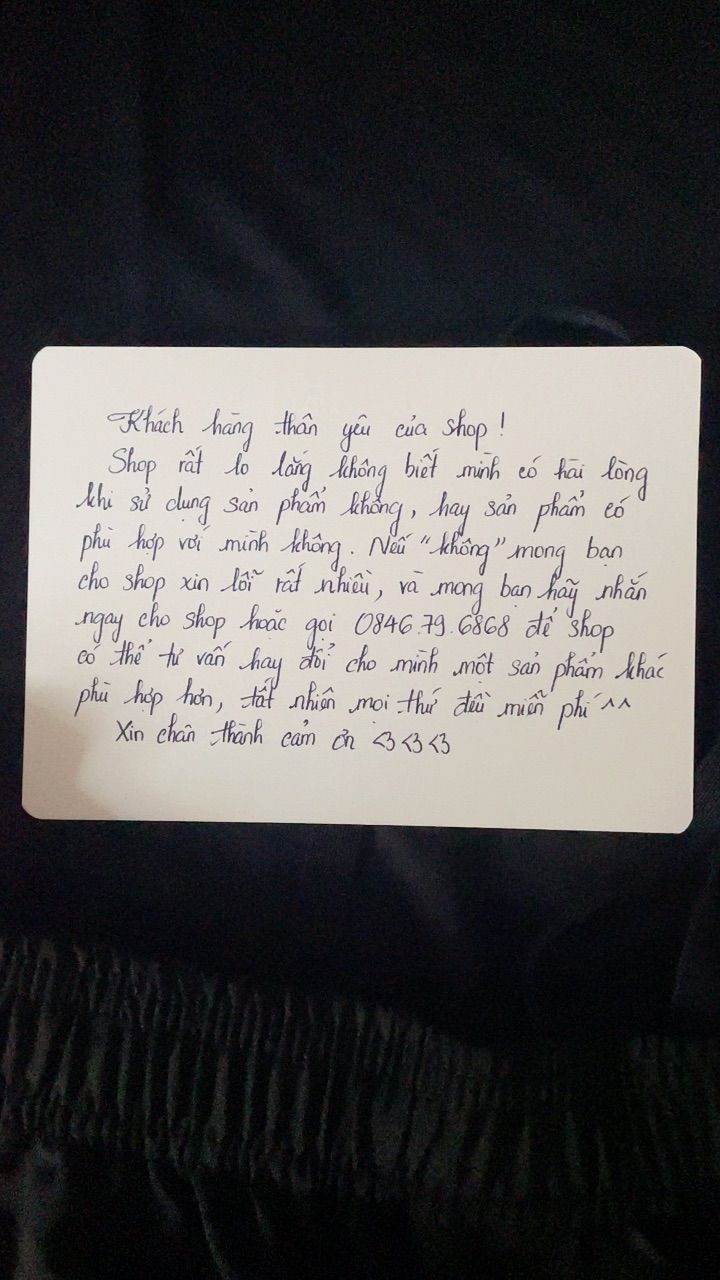 Khách hàng thân yêu của shop !
Shop rất lo lắng không biết mình có hài lòng
khi sử dụng sản phẩm không, hay sản phẩm có
phù hợp với mình không. Nếu "không" mong bạn
cho shop xin lỗi rất nhiều, và mong bạn hãy nhắn
ngay cho shop hoặc gọi 0846.79.6868 để shop
có thể tư vấn hay đổi cho mình một sản phẩm khác
phù hợp hơn, tất nhiên mọi thứ đều miễn phí ^^
Xin chân thành cảm ơn <3 <3 <3